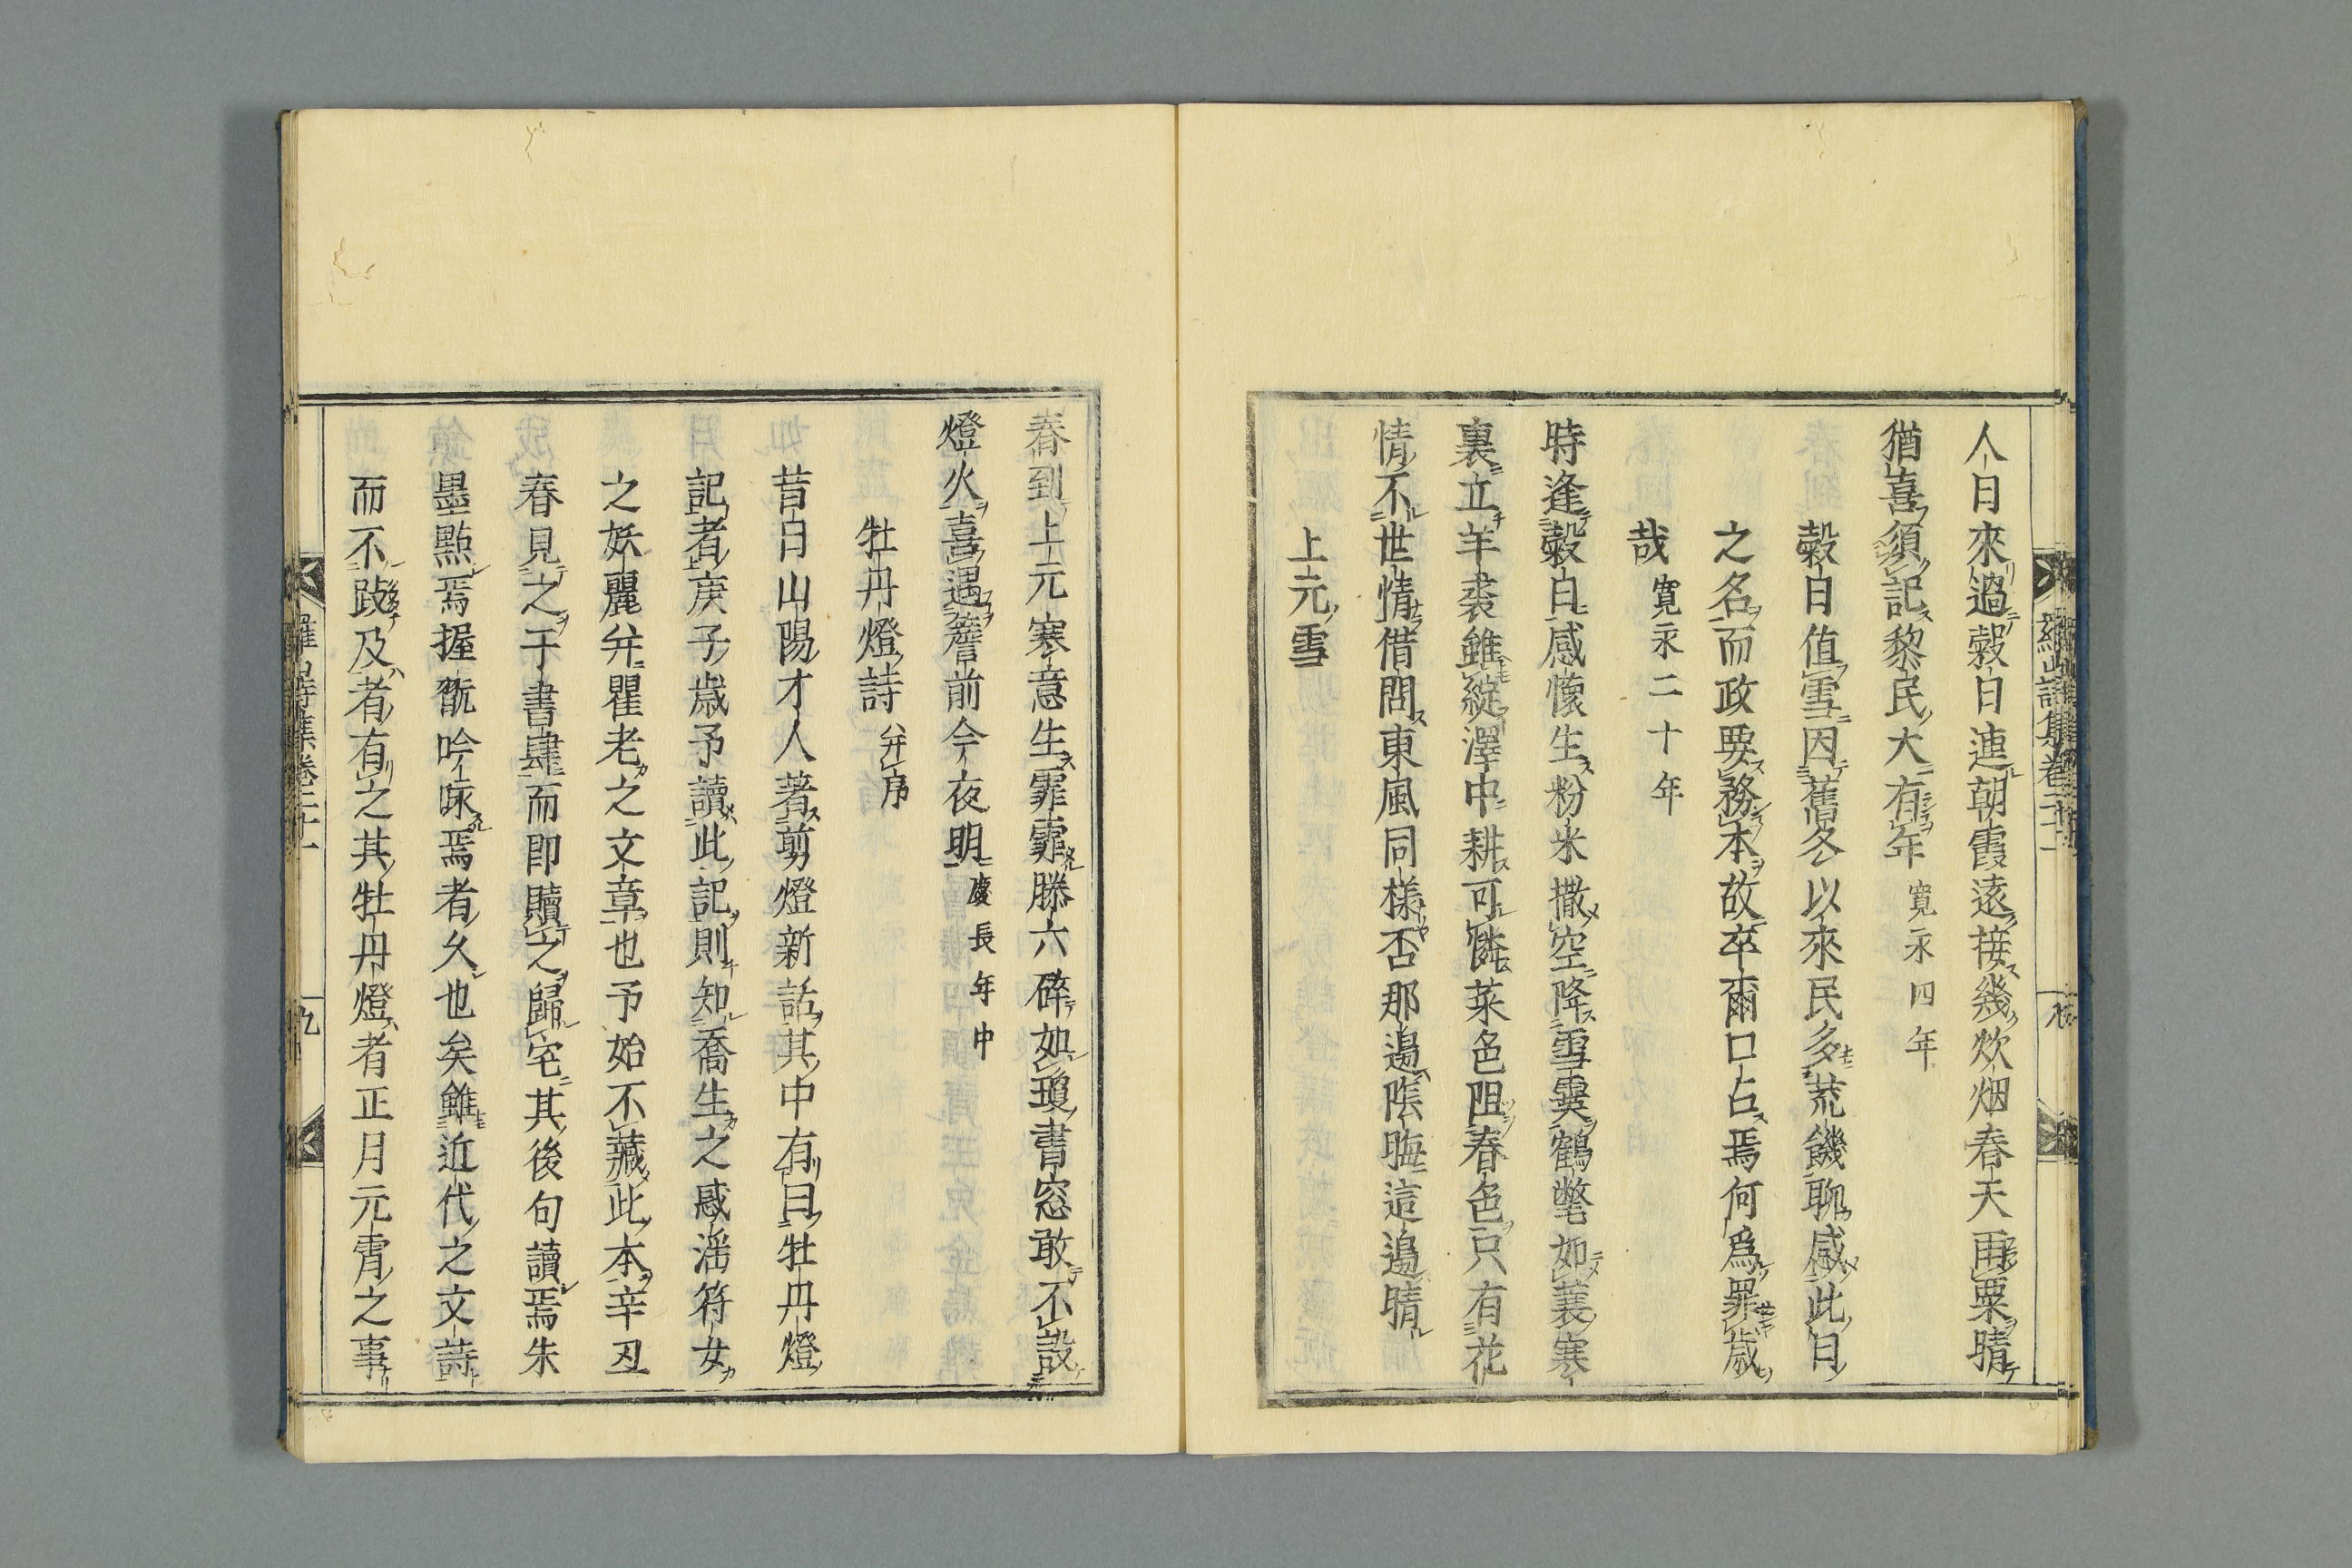 人日來過穀日連朝霞遠接幾炊烟春天雨粟晴
猶喜須記黎民大有年 寛永四年
穀日值雪因舊冬以來民多荒饑聊感此日
之名而政要務本故卒爾口占焉何爲罪歳
哉 寛永二十年
時逢穀日感懷生粉米撒空降雪霙鶴氅如蓑寒
裏立羊裘雖綻澤中耕可憐菜色阻春色只有花
情不世情借問東風同樣否那邊陰晦這邊晴
上元雪
春到上元寒意生霏霏滕六碎如瓊書窓敢不設
燈火喜遇簷前今夜明 慶長年中
牡丹燈詩 并序
昔日山陽才人著剪燈新話其中有曰牡丹燈
記者庚子歳予讀此記則知喬生之惑淫符女
之妖麗并瞿老之文章也予始不藏此本辛丑
春見之于書肆而即贖之歸宅其後句讀焉朱
墨點焉握翫吟咏焉者久也矣雖近代之文詩
而不跂及者有之其牡丹燈者正月元霄之事
羅山詩集卷二十一
九